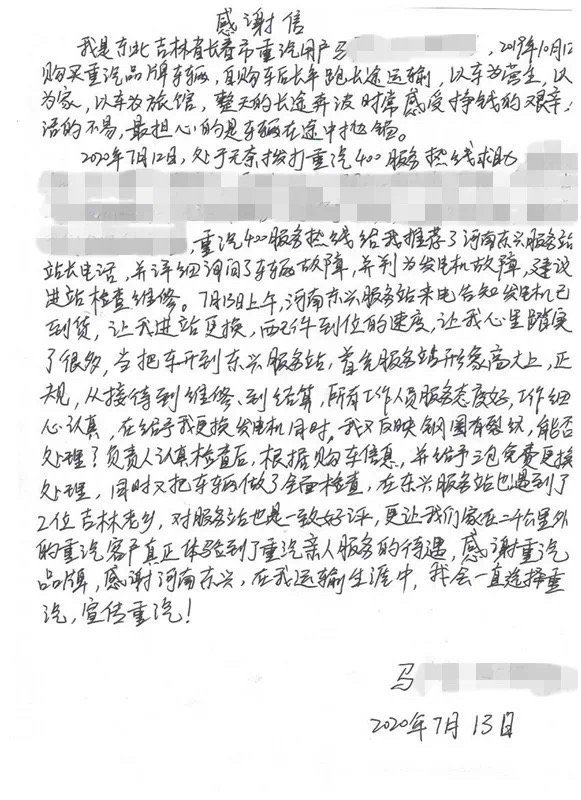 感谢信
我是东北吉林省长春市重汽用户马 , 2019年10月12
购买重汽品牌车辆,自购车后长年跑长途运输,以车为营生,以
为家,以车为旅馆,整天的长途奔波时常感受挣钱的艰辛,
活的不易,最担心的是车辆在途中抛锚。
2020年7月12日,处于无奈拨打重汽400服务热线求助
,重汽400服务热线给我推荐了河南东兴服务站
站长电话,并详细询问了车辆故障,并判为发电机故障,建议
进站检查维修。7月13日上午,河南东兴服务站来电告知发电机已
到货,让我进站更换,配件到位的速度,让我心里踏实
了很多,当把车开到东兴服务站,首先服务站形象高大上,正
规,从接待到维修、到结算,所有工作人员服务态度好,工作细
心认真,在给予我更换发电机同时,我又反映钢圈有裂纹,能否
处理?负责人认真检查后,根据购车信息,并给予三包免费更换
处理,同时又把车辆做了全面检查,在东兴服务站也遇到了
2位吉林老乡,对服务站也是一致好评,更让我们家在二千里外
的重汽客户真正体验到了重汽亲人服务的待遇,感谢重汽
品牌,感谢河南东兴,在我运输生涯中,我会一直选择重
汽,宣传重汽!
马
2020年7月13日